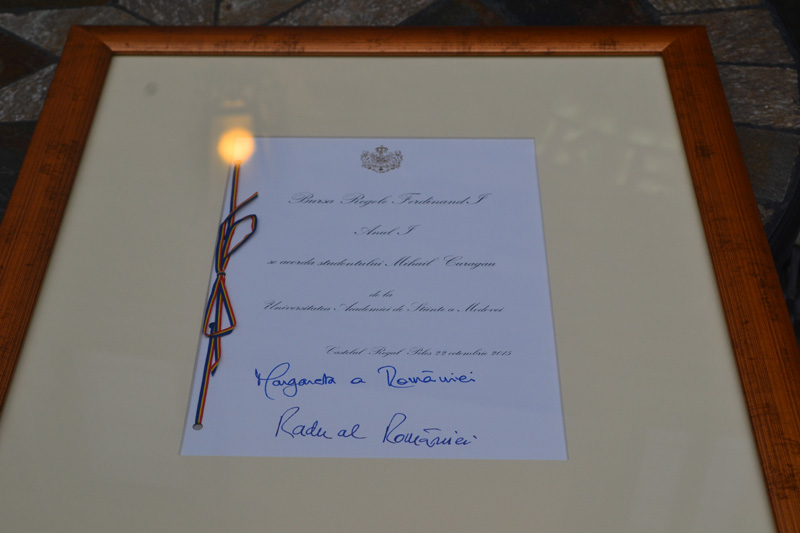 Bursa Regele Ferdinand I
Anul I
se acorda studentului Mihail Curagau
de la
Universitatea Academiei de Stiinte a Modovei
Castelul Regal Peles 22 octombrie 2015
Margareta a României
Radu al României